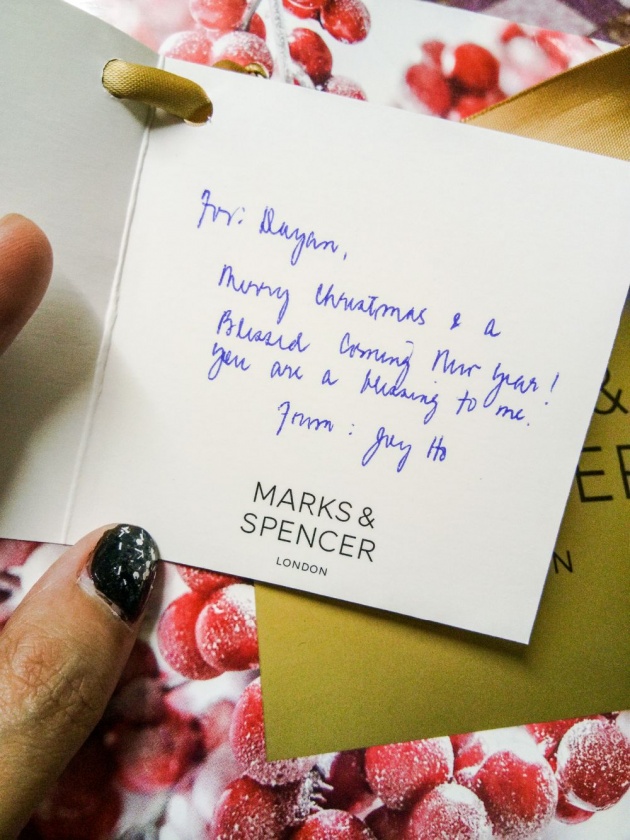 For: Dayan,
Merry Christmas & a
Blessed Coming New Year!
you are a blessing to me.
From: Joy Ho
MARKS &
SPENCER
LONDON
&
ER
N